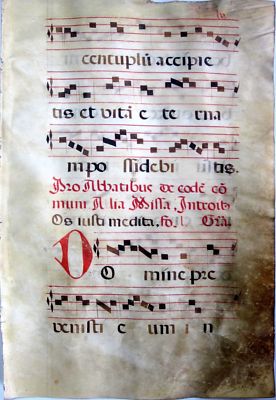 centuplũ accipie
tis et vitã e te rna
m po ssidebi tis.
Pro Abbatibus de eodẽ cõ
muni Alia Missa, Introit
Os iusti medita, fo. Gra.
D O mine pre
venisti e um i n